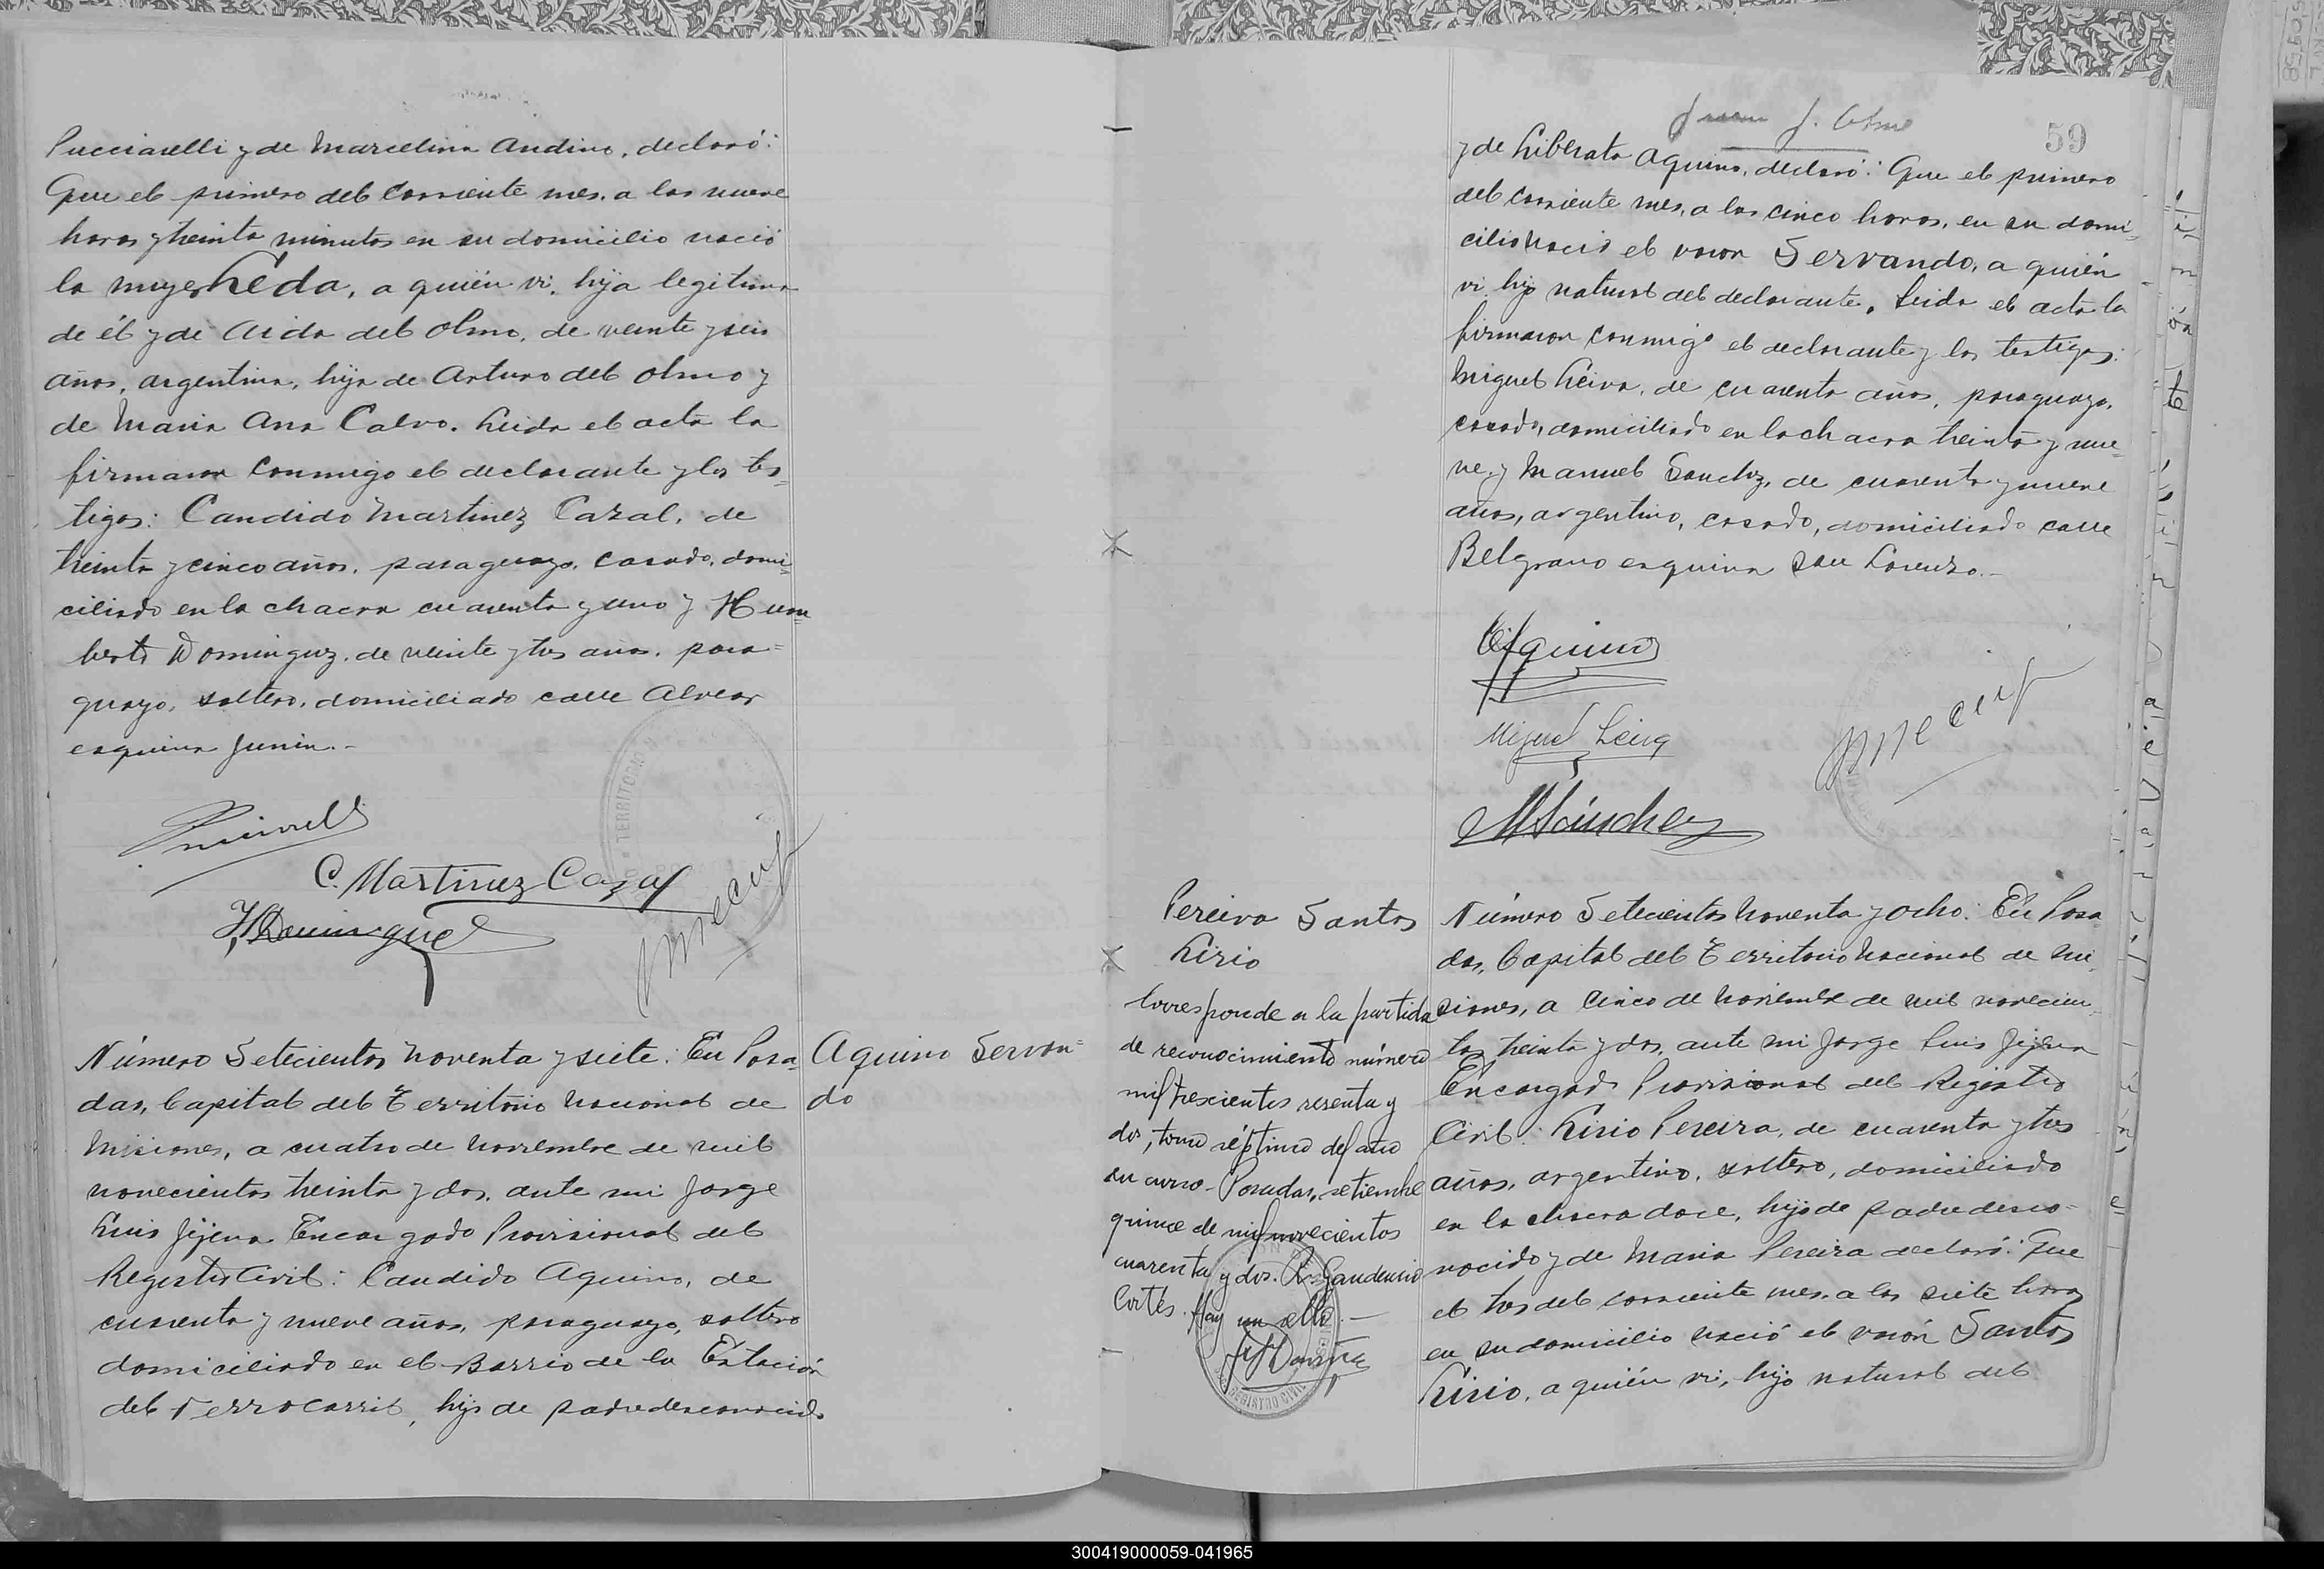 Pucciarelli y de Marcelina Andino, declaró:
Que el primero del corriente mes, a las nueve
horas y treinta minutos en su domicilio nació
la mujer Leda, a quién vi, hija legitima
de él y de Aida del Olmo, de veinte y seis
años, argentina, hija de Arturo del Olmo y
de Maria Ana Calvo. Leida el acta la
firmaron conmigo el declarante y los tes=
tigos: Candido Martinez Cazal, de
treinta y cinco años, paraguayo, casado, domi=
ciliado en la chacra cuarenta y uno y Hum=
berto Dominguez, de veinte y tres años, para=
guayo, soltero, domiciliado calle Alvear
esquina Junin.-
C. Martinez Cazal
H. Dominguez
Número Setecientos noventa y siete: En Posa=
das, Capital del Territorio Nacional de
Misiones, a cuatro de Noviembre de mil
novecientos treinta y dos, ante mi Jorge
Luis Jijena Encargado Provisional del
Registro Civil: Candido Aquino, de
cuarenta y nueve años, paraguayo, soltero
domiciliado en el Barrio de la Estación
del Ferrocarril, hijo de padre desconocido
Aquino Servan=
do
59
y de Liberata Aquino, declaró: Que el primero
del corriente mes, a las cinco horas, en su domi=
cilio nació el varon Servando, a quién
vi, hijo natural del declarante. Leida el acta la
firmaron conmigo el declarante y los testigos:
Miguel Leiva, de cuarenta años, paraguayo,
casado, domiciliado en la chacra treinta y nue=
ve, y Manuel Sanchez, de cuarenta y nueve
años, argentino, casado, domiciliado calle
Belgrano esquina San Lorenzo.-
Aquino
Miguel Leiva
M Sánchez
Pereira Santos
Lirio
Corresponde a la partida
de reconocimiento número
mil trescientos sesenta y
dos, tomo séptimo del año
en curso- Posadas, setiembre
quince de mil novecientos
cuarenta y dos. R. Gaudencio
Cortés. Hay un sello.-
Número Setecientos noventa y ocho: En Posa=
das, Capital del Territorio Nacional de Mi=
siones, a cinco de Noviembre de mil novecien=
tos treinta y dos, ante mi Jorge Luis Jijena
Encargado Provisional del Registro
Civil: Lirio Pereira, de cuarenta y tres
años, argentino, soltero, domiciliado
en la chacra doce, hijo de padre desco=
nocido y de Maria Pereira declaró: Que
el tres del corriente mes, a las siete horas
en su domicilio nació el varón Santos
Lirio, a quién vi, hijo natural del
300419000059-041965